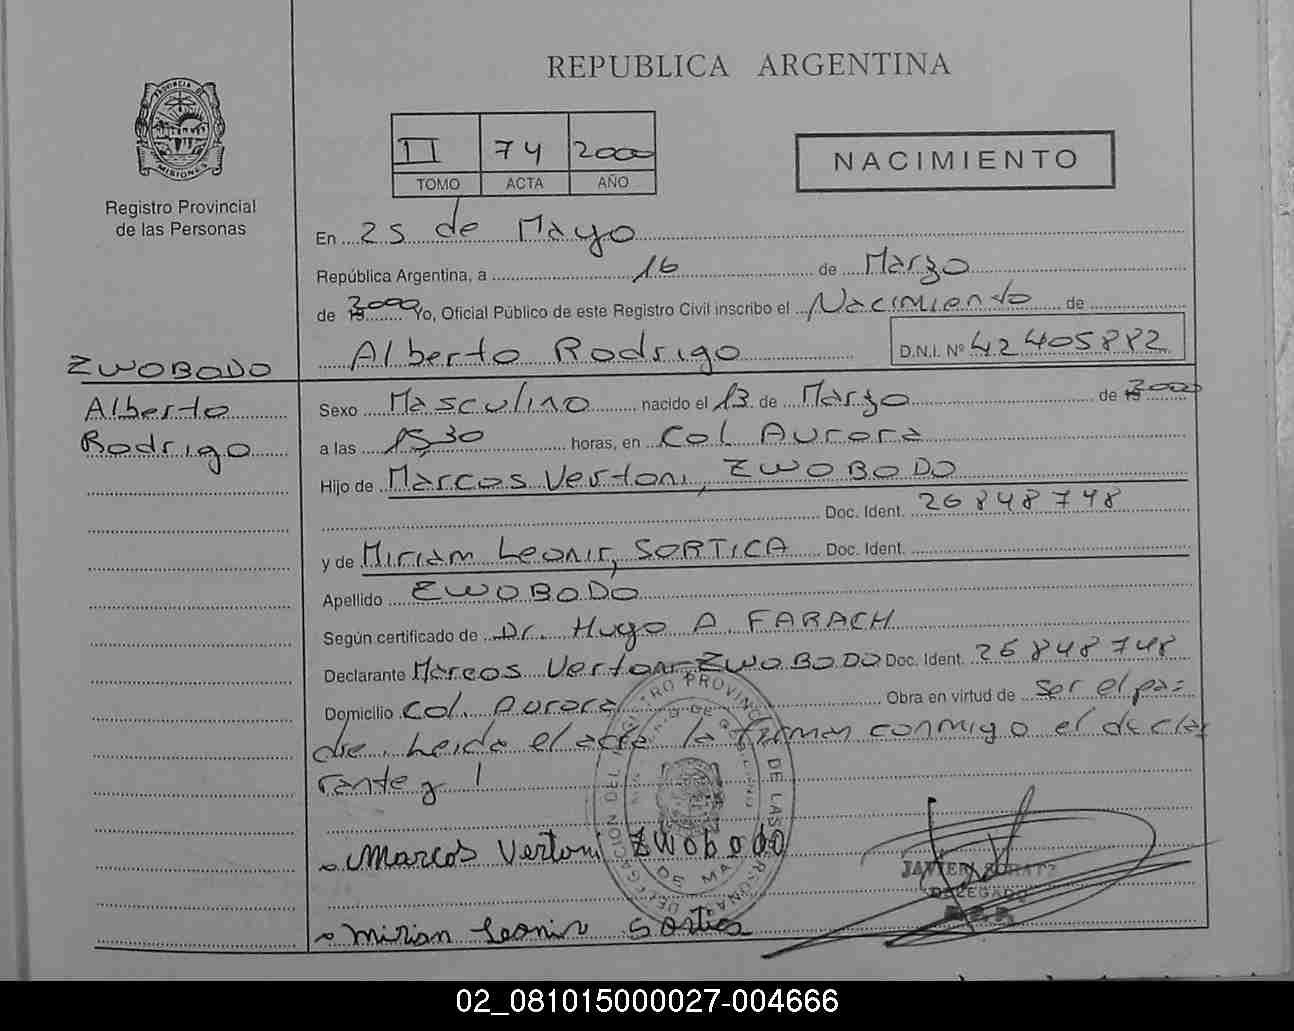 REPUBLICA ARGENTINA
PROVINCIA DE MISIONES
Registro Provincial
de las Personas
II 74 2000
TOMO ACTA AÑO
NACIMIENTO
En 25 de Mayo
República Argentina, a 16 de Marzo
de 2000 Yo, Oficial Público de este Registro Civil inscribo el Nacimiento de
Alberto Rodrigo D.N.I. Nº 42405882
ZWOBODO
Alberto
Rodrigo
Sexo Masculino nacido el 13 de Marzo de 2000
a las 15,30 horas, en Col Aurora
Hijo de Marcos Vertoni, ZWOBODO
Doc. Ident. 26848748
y de Miriam Leonir, SORTICA Doc. Ident.
Apellido ZWOBODO
Según certificado de Dr. Hugo A FARACH
Declarante Marcos Vertoni ZWOBODO Doc. Ident. 26848748
Domicilio Col. Aurora Obra en virtud de ser el pa=
dre. Leida el acta la firman conmigo el decla
rante y
Marcos Vertoni Zwobodo
JAVIER
DELEGADO
Mirian Leonir Sortica
02_081015000027-004666